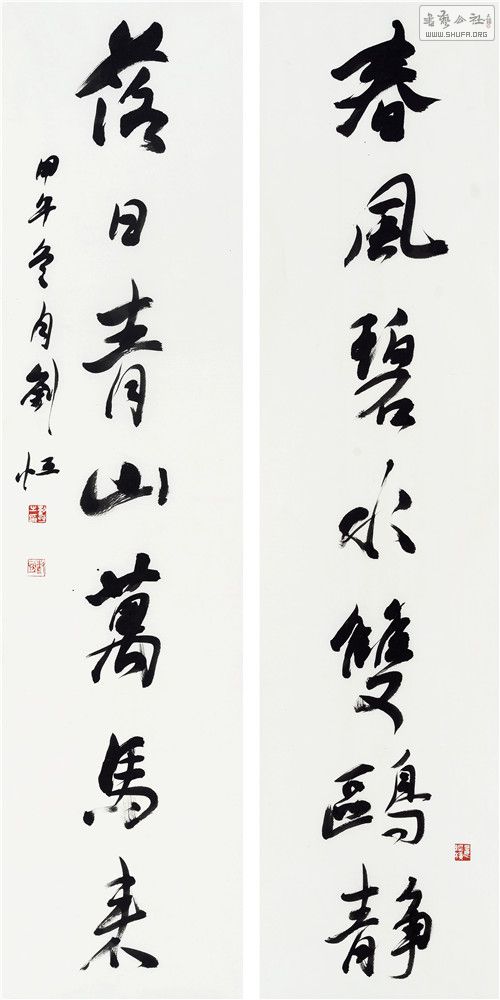 春風碧水雙鷗静
落日青山萬馬来
甲午冬月劉恒
書藝公社
WWW.SHUFA.ORG